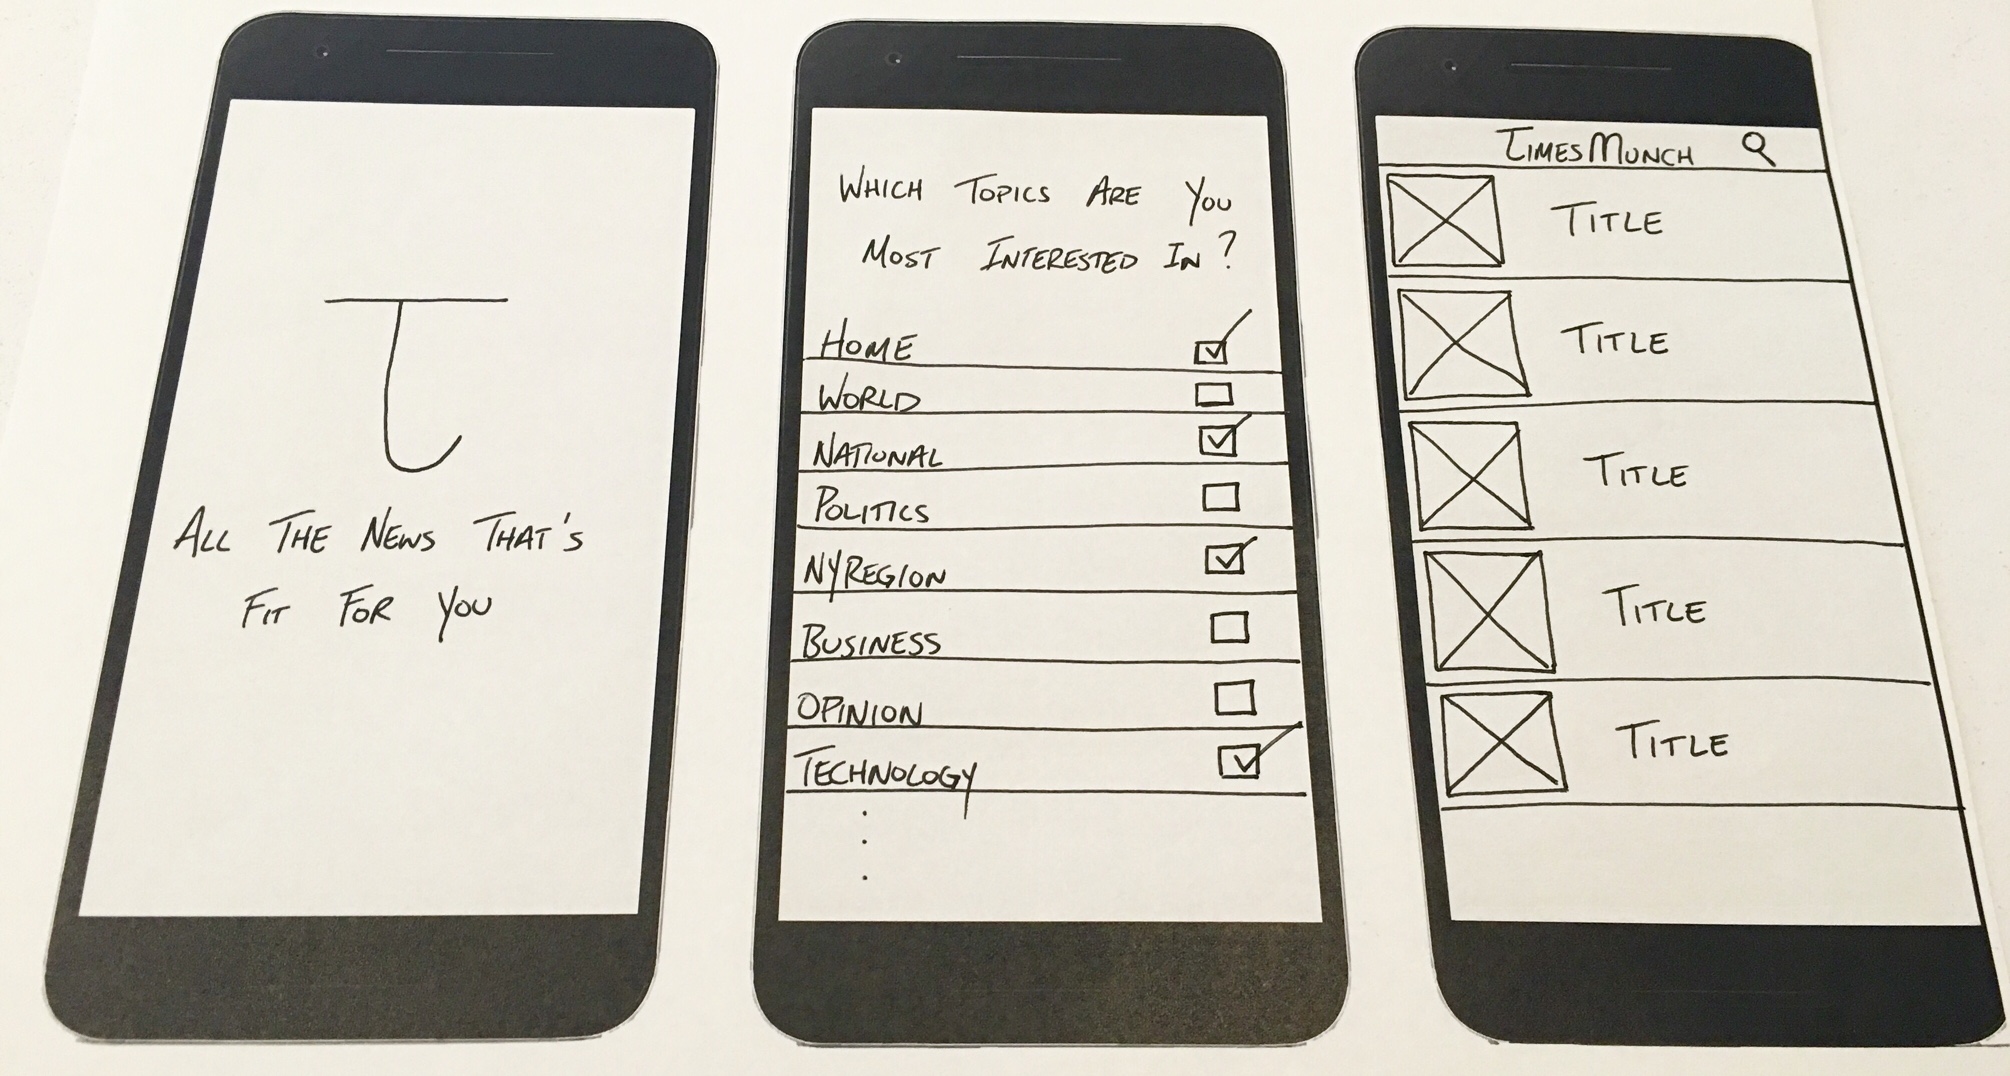 T
ALL THE NEWS THAT'S
FIT FOR YOU
WHICH TOPICS ARE YOU
MOST INTERESTED IN?
HOME
WORLD
NATIONAL
POLITICS
NYREGION
BUSINESS
OPINION
TECHNOLOGY
TIMESMUNCH
TITLE
TITLE
TITLE
TITLE
TITLE